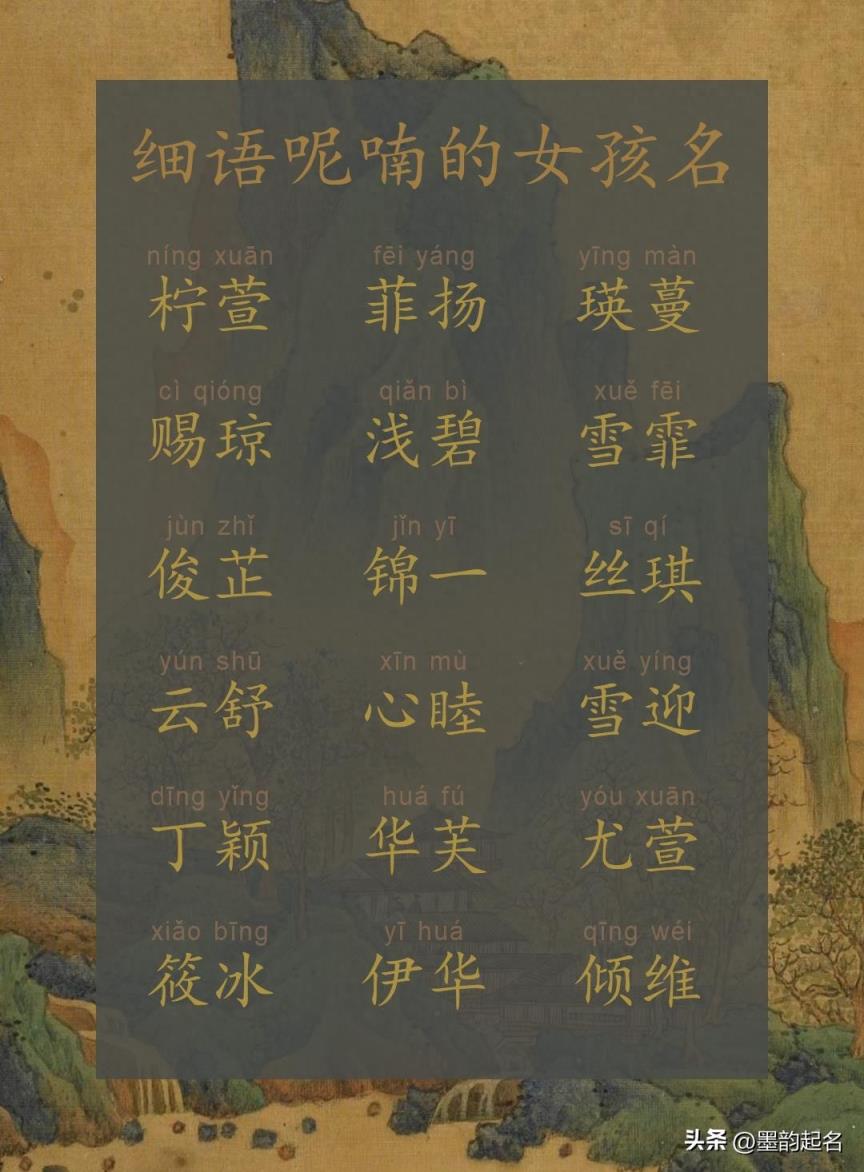 细语呢喃的女孩名
níng xuān fēi yáng yīng màn
柠萱 菲扬 瑛蔓
cì qióng qiǎn bì xuě fēi
赐琼 浅碧 雪霏
jùn zhǐ jǐn yī sī qí
俊芷 锦一 丝琪
yún shū xīn mù xuě yíng
云舒 心睦 雪迎
dīng yǐng huá fú yóu xuān
丁颖 华芙 尤萱
xiǎo bīng yī huá qīng wéi
筱冰 伊华 倾维
头条 @墨韵起名